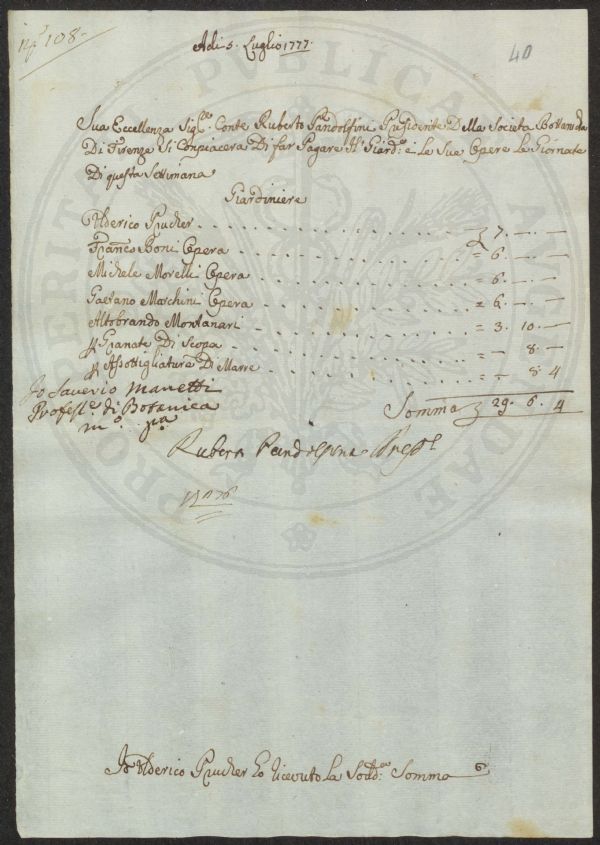 108.
40
Adi 5. Luglio 1777.
Sua Eccellenza Sig.re Conte Ruberto Pandolfini Presidente Della Societa Bottanicha
Di Firenze Si Conpiacera Di far Pagare Il Giard.e e Le Sue Opere Le Giornate
Di questa Settimana
Giardiniere
Ulderico Prucker = 7. — —
Franc.o Boni Opera = 6. — —
Michele Morelli Opera = 6. — —
Gaetano Marchini Opera = 6. — —
Altobrando Montanari = 3. 10. —
Granate Di Scopa = — 8. —
Assottigliatura Di Marre = — 8. 4
Somma 29. 6. 4
Io Saverio Manetti
Profess.e di Botanica
m.o p.a
Pandolfini Presd.e
Io Ulderico Prucker Ho Riceuto La Sodd.a Somma
PROSPERITATI PUBLICAE AUGENDAE